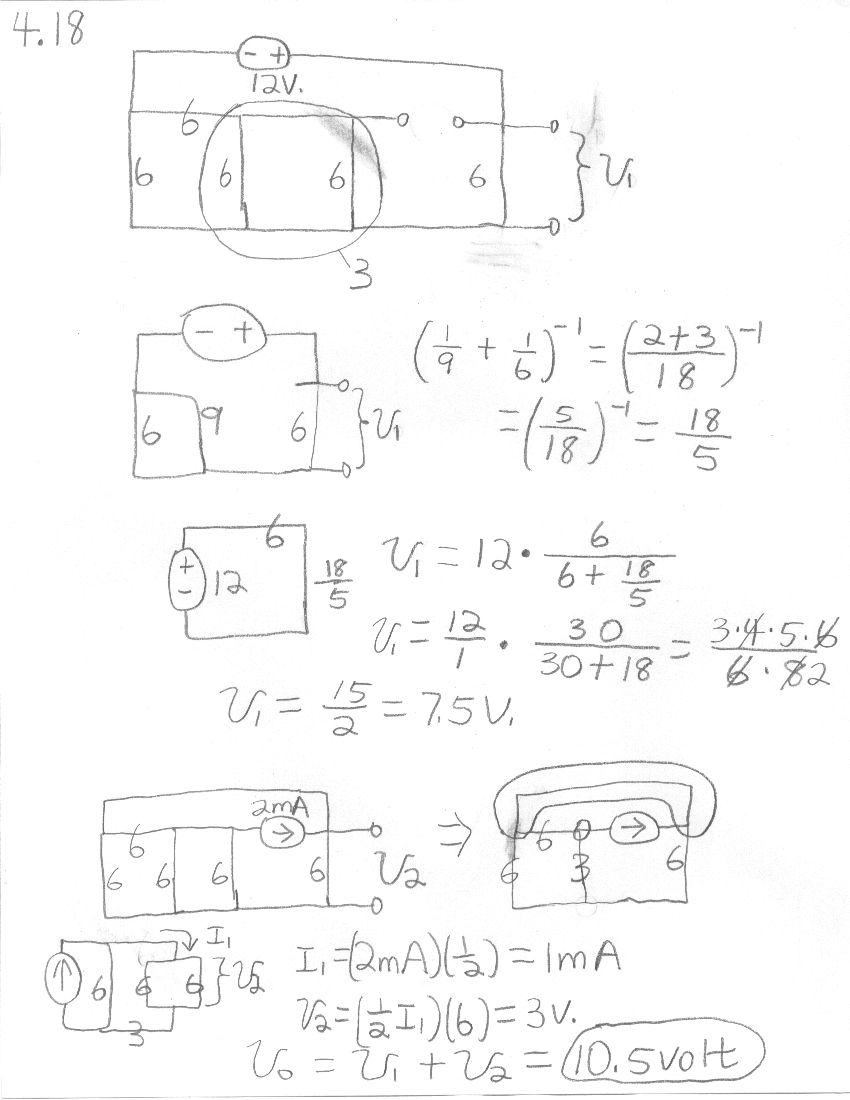 4.18
- +
12V.
6
6 6 6 6 } V₁
3
- +
6 9 6 } V₁
(1/9 + 1/6)⁻¹ = ((2+3)/18)⁻¹
= (5/18)⁻¹ = 18/5
6
+ - 12 18/5
V₁ = 12 · 6/(6 + 18/5)
V₁ = 12/1 · 30/(30+18) = (3·4·5·6)/(6·82)
V₁ = 15/2 = 7.5V.
2mA
6
6 6 6 6 V₂ ⇒
6
6 3 6
I₁
6 6 6 } V₂
3
I₁=(2mA)(1/2) = 1mA
V₂=(1/2 I₁)(6) = 3V.
V₀ = V₁ + V₂ = 10.5volt